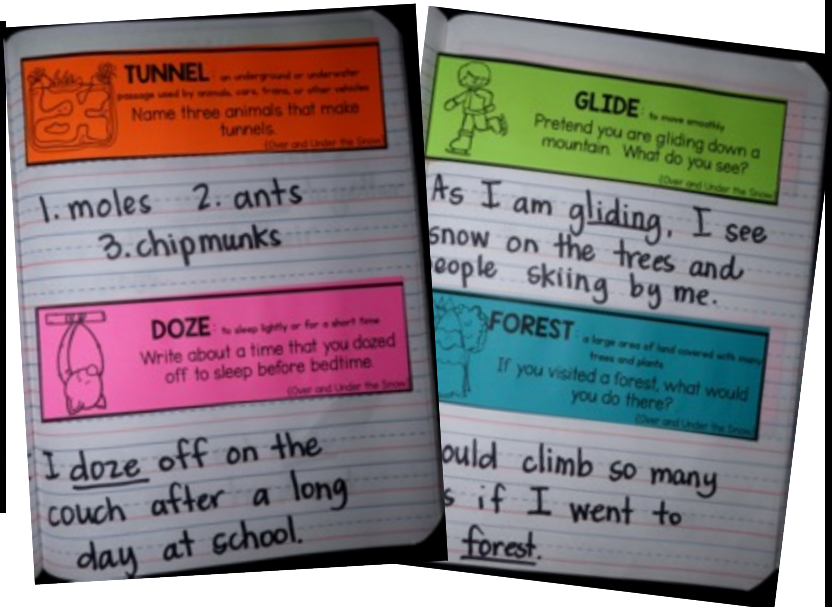 TUNNEL: an underground or underwater
passage used by animals, cars, trains, or other vehicles
Name three animals that make
tunnels.
(Over and Under the Snow)
1. moles 2. ants
3. chipmunks
DOZE: to sleep lightly or for a short time
Write about a time that you dozed
off to sleep before bedtime.
(Over and Under the Snow
I doze off on the
couch after a long
day at school.
GLIDE: to move smoothly
Pretend you are gliding down a
mountain. What do you see?
(Over and Under the Snow
As I am gliding, I see
snow on the trees and
eople skiing by me.
FOREST: a large area of land covered with many
trees and plants
If you visited a forest, what would
you do there?
(Over and Under the Snow
ould climb so many
s if I went to
forest.